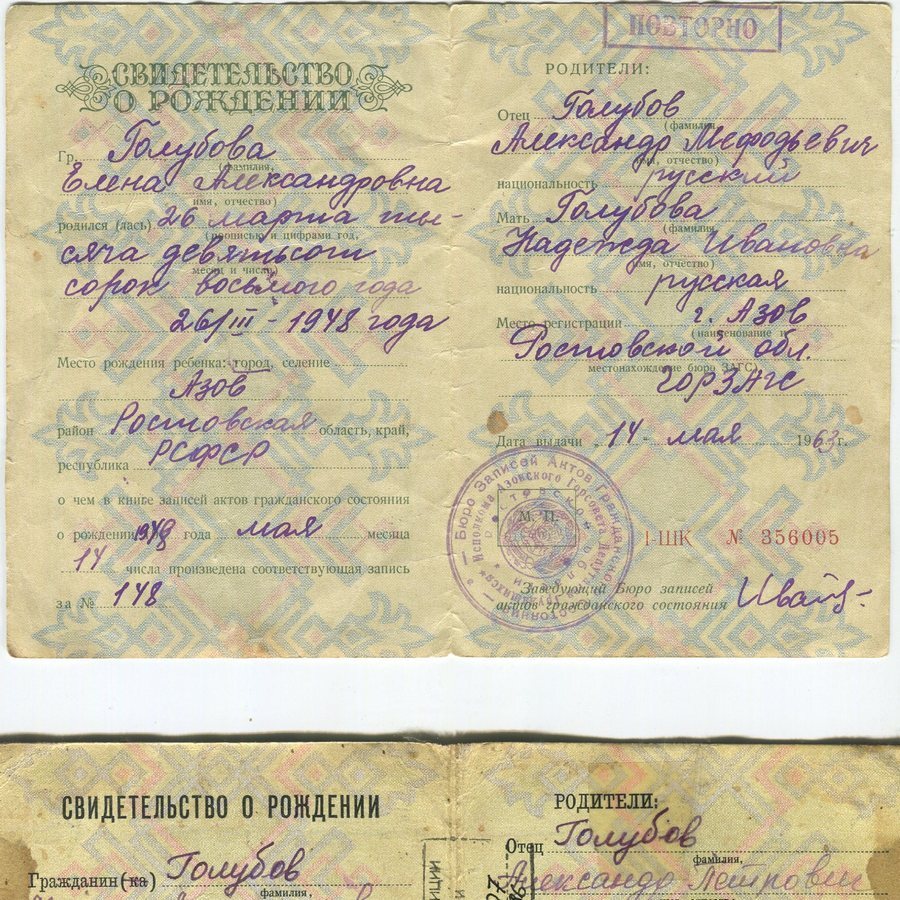 ПОВТОРНО
СВИДЕТЕЛЬСТВО
О РОЖДЕНИИ
Гр. Голубова
(фамилия,
Елена Александровна
имя, отчество)
родился (лась) 26 марта ты-
(прописью и цифрами год,
сяча девятьсот
месяц и число)
сорок восьмого года
26/III - 1948 года
Место рождения ребенка: город, селение
Азов
район Ростовская область, край,
республика РСФСР
о чем в книге записей актов гражданского состояния
о рождении 1948 года мая месяца
14 числа произведена соответствующая запись
за № 148
РОДИТЕЛИ:
Отец Голубов
(фамилия,
Александр Мефодьевич
имя, отчество)
национальность русский
Мать Голубова
(фамилия
Надежда Ивановна
имя, отчество)
национальность русская
Место регистрации г. Азов
(наименование и
Ростовской обл.
местонахождение бюро ЗАГС)
ГОРЗАГС
Дата выдачи „14- мая 1963г.
М. П.
I-ШК № 356005
Заведующий Бюро записей
актов гражданского состояния
СВИДЕТЕЛЬСТВО О РОЖДЕНИИ
Гражданин(ка) Голубов
(фамилия,
РОДИТЕЛИ:
Отец Голубов
фамилия,
Александр Петрович